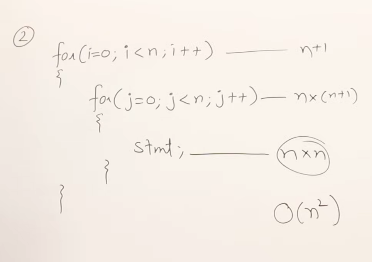 ②
for(i=0; i<n; i++) —— n+1
{
for(j=0; j<n; j++) — n×(n+1)
{
stmt; —— n×n
}
}
O(n²)